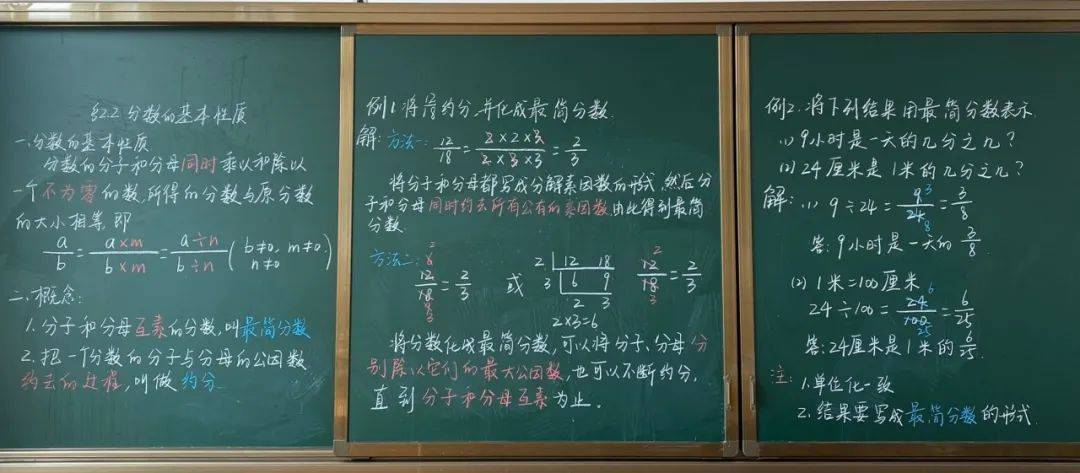 §2.2 分数的基本性质
一、分数的基本性质
分数的分子和分母同时乘以和除以
一个不为零的数,所得的分数与原分数
的大小相等,即
a/b = a×m/b×m = a÷n/b÷n ( b≠0, m≠0, n≠0 )
二、概念:
1. 分子和分母互素的分数,叫最简分数
2. 把一个分数的分子与分母的公因数
约去的过程,叫做 约分
例1. 将12/18约分,并化成最简分数.
解: 方法一: 12/18 = 2×2×3/2×3×3 = 2/3
将分子和分母都写成分解素因数的形式,然后分
子和分母同时约去所有公有的素因数,由此得到最简
分数.
方法二: 12/18 = 2/3 或 2 12 18 12/18 = 2/3
6 9
3 6 9
2 3
2×3=6
将分数化成最简分数,可以将分子、分母分
别除以它们的最大公因数,也可以不断约分,
直到分子和分母互素为止.
例2. 将下列结果用最简分数表示.
(1) 9小时是一天的几分之几?
(2) 24厘米是1米的几分之几?
解: (1) 9÷24 = 9/24 = 3/8
答: 9小时是一天的3/8
(2) 1米=100厘米
24÷100 = 24/100 = 6/25
答: 24厘米是1米的6/25.
注: 1. 单位化一致
2. 结果要写成最简分数的形式.